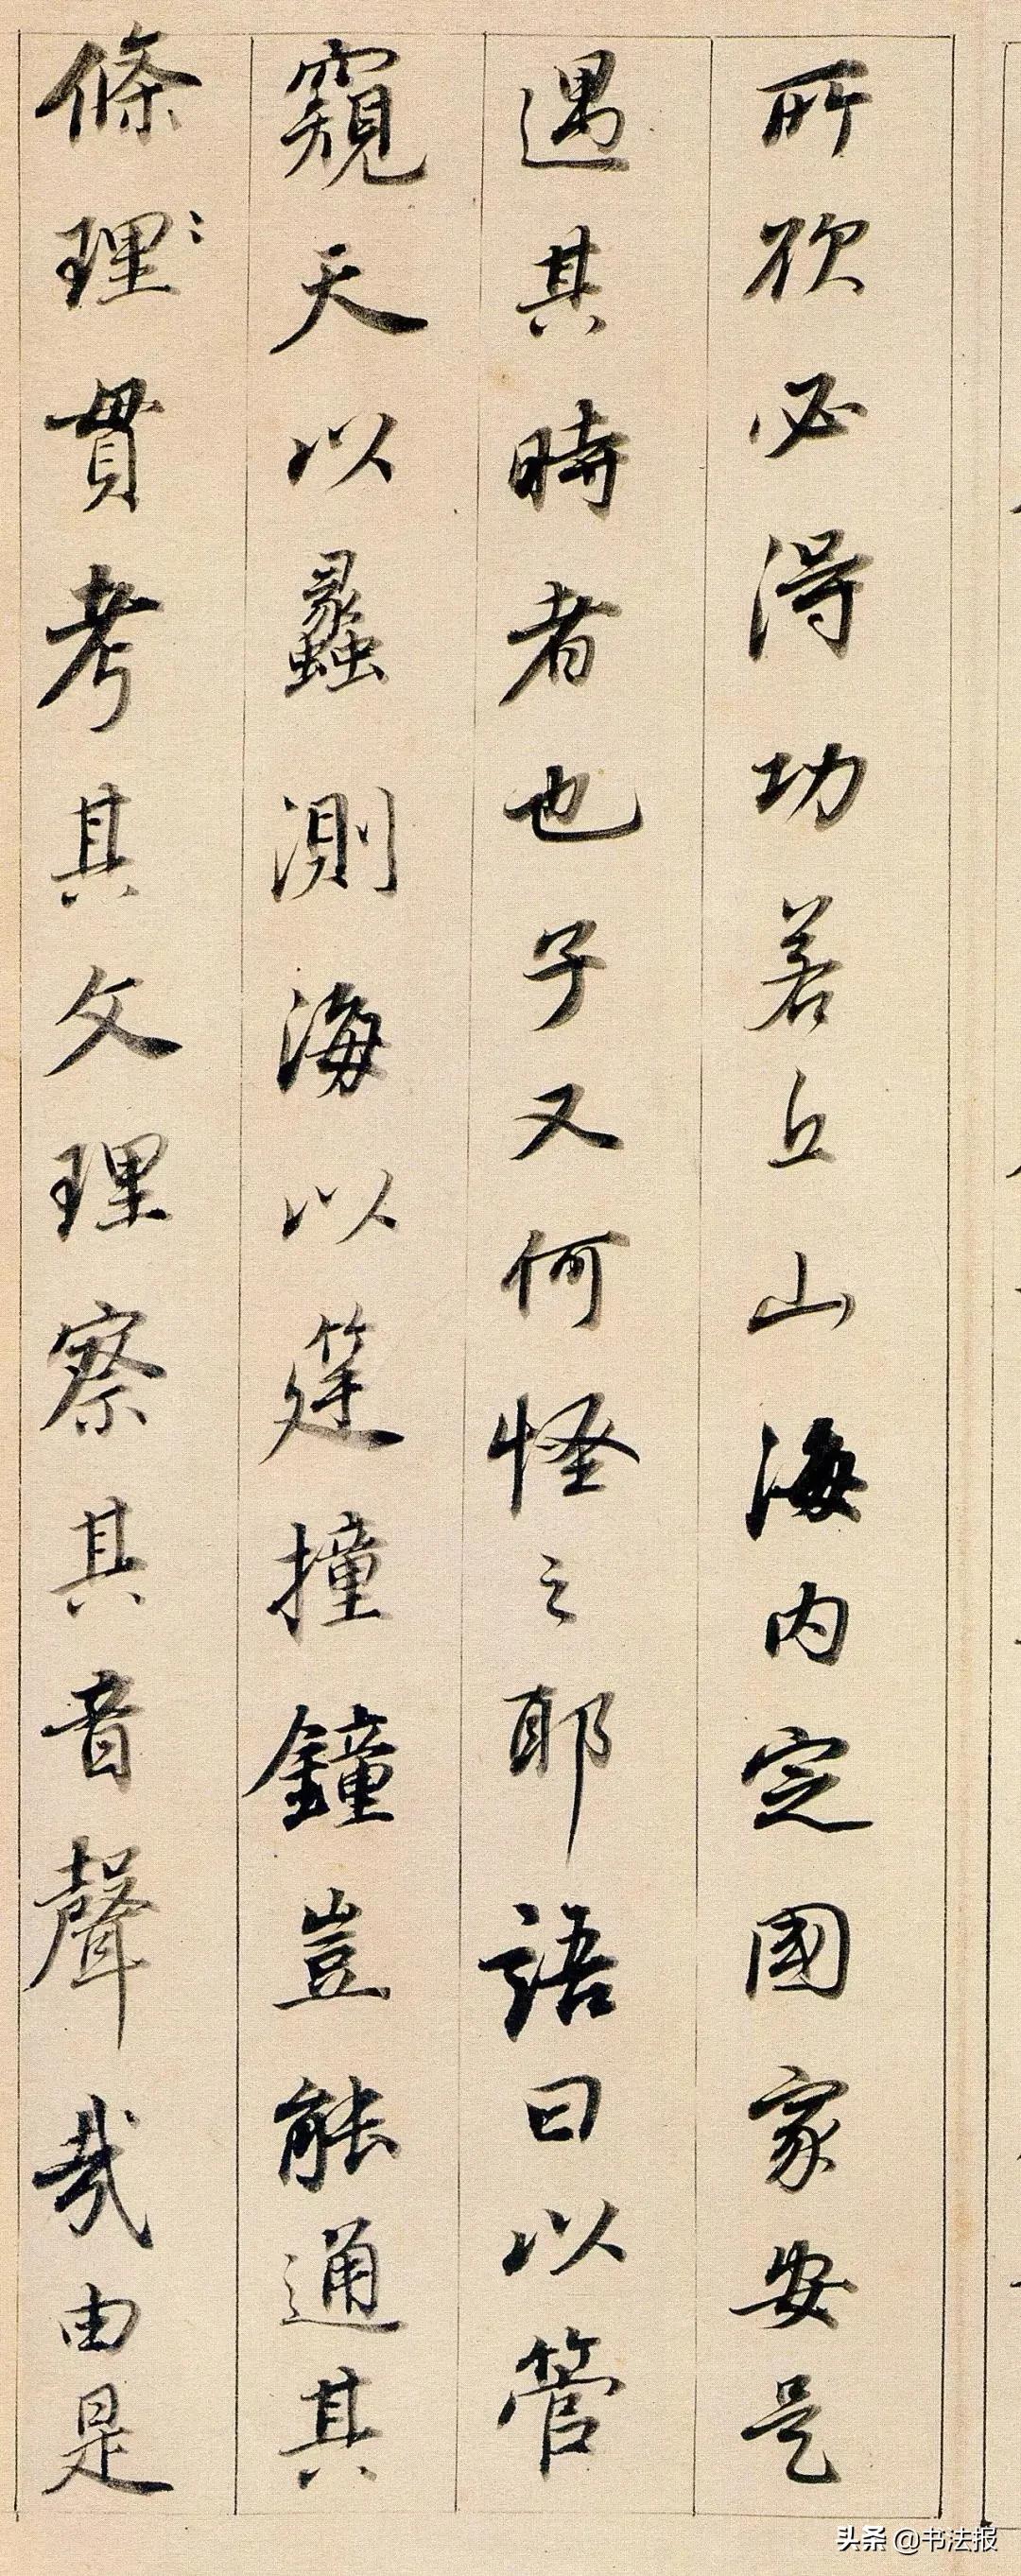 所欲必得功若丘山海内定國家安是
遇其時者也子又何怪之耶語曰以管
窺天以蠡測海以筳撞鐘豈能通其
條理〻貫考其文理察其音聲哉由是
头条 @书法报